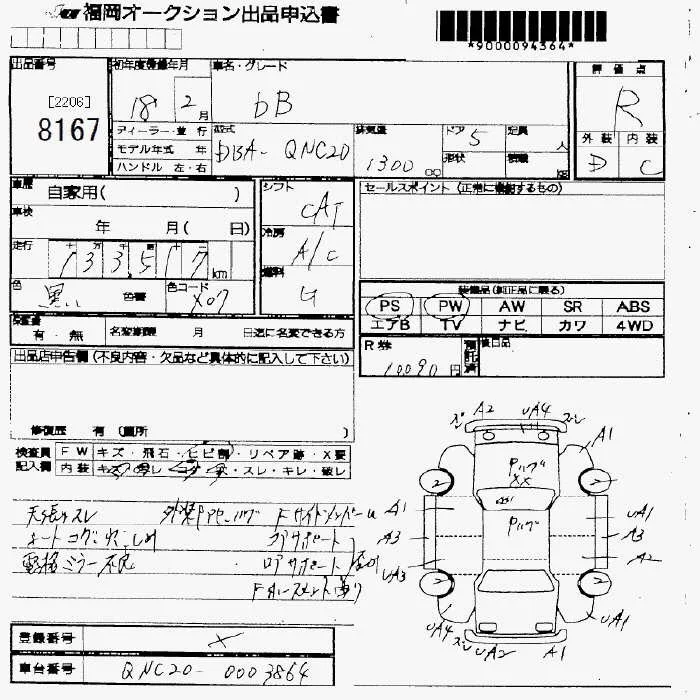 福岡オークション出品申込書
*9000094364*
出品番号
[2206]
8167
初年度登録年月
18 2月
車名・グレード
bB
評価点
R
外装 内装
D C
ディーラー・並 行
モデル年式 年
ハンドル 左・右
型式
DBA- QNC20
排気量
1300 cc
ドア 5
形状
定員 人
積載 kg
車歴
自家用( )
車検
年 月( 日)
走行
133517km
色
黒い 色替
色コード X07
シフト
CAT
冷房
A/C
燃料
G
セールスポイント (正常に機能するもの)
装備品(純正品に限る)
PS PW AW SR ABS
エアB TV ナビ カワ 4WD
有・無 名変期限 月 日迄に名変できる方
R券
10090円
預託済
後日品
出品店申告欄 (不良内容・欠品など具体的に記入して下さい)
修復歴 有 (箇所 )
検査員
記入欄
FW キズ・飛石・ヒビ割・リペア跡・X要
内装 キズ・ヨゴレ・コゲ・穴・スレ・キレ・破レ
天張スレ
シートコゲ穴こしめ
電格ミラー不良
Fサイドメンバー
コアサポート
ロアサポート
A2 UA4 ズレ
A1
A1
UA1
A3
A3
A2
UA3
UA4
UA1
ズレ
UA2 A1
2
2
2
2
登録番号
X
車台番号
QNC20-0003864